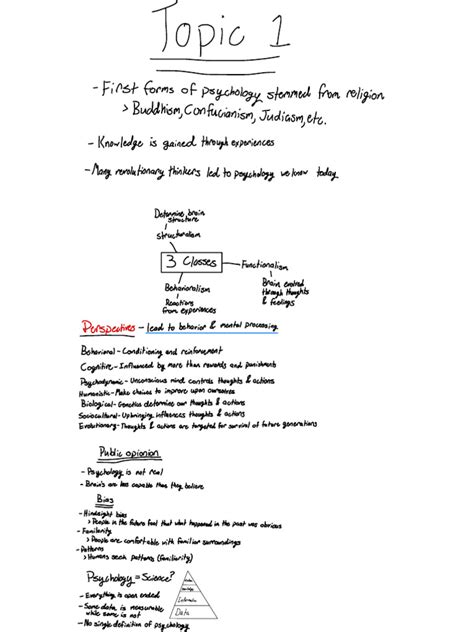 Topic 1
- First forms of psychology stemmed from religion
> Buddhism, Confucianism, Judiasm, etc.
- Knowledge is gained through experiences
- Many revolutionary thinkers led to psychology we know today
Determine brain
structure
structuralism
3 Classes
Functionalism
Brain evolved
through thoughts
& feelings
Behavioralism
Reactions
from experiences
Perspectives - lead to behavior & mental processing
Behavioral - Conditioning and reinforcement
Cognitive - Influenced by more than rewards and punishments
Psychodynamic - Unconscious mind controls thoughts & actions
Humanistic - Make choices to improve upon ourselves
Biological - Genetics determine our thoughts & actions
Sociocultural - Upbringing influences thoughts & actions
Evolutionary - Thoughts & actions are targeted for survival of future generations
Public opionion
- Psychology is not real
- Brain's are less capable than they believe
Bias
- Hindsight bias
> People in the future feel that what happened in the past was obvious
- Familiarity
> People are comfortable with familiar surroundings
- Patterns
> Humans seek patterns (familiarity)
Psychology = Science?
- Everything is open ended
- Some data is measurable
while some is not
- No single definition of psychology
Knowledge
Information
Data